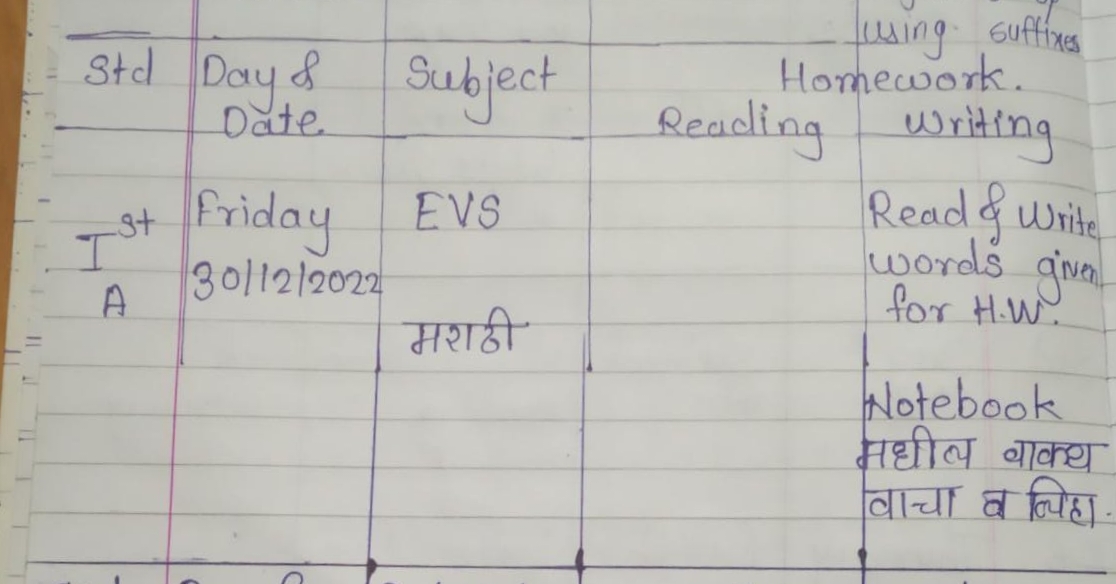 using suffixes
Std Day & Subject Homework.
Date. Reading Writing
Friday EVS Read & Write
Ist 30/12/2022 words given
A for H.W.
मराठी
Notebook
मधील वाक्य
वाचा व लिहा.